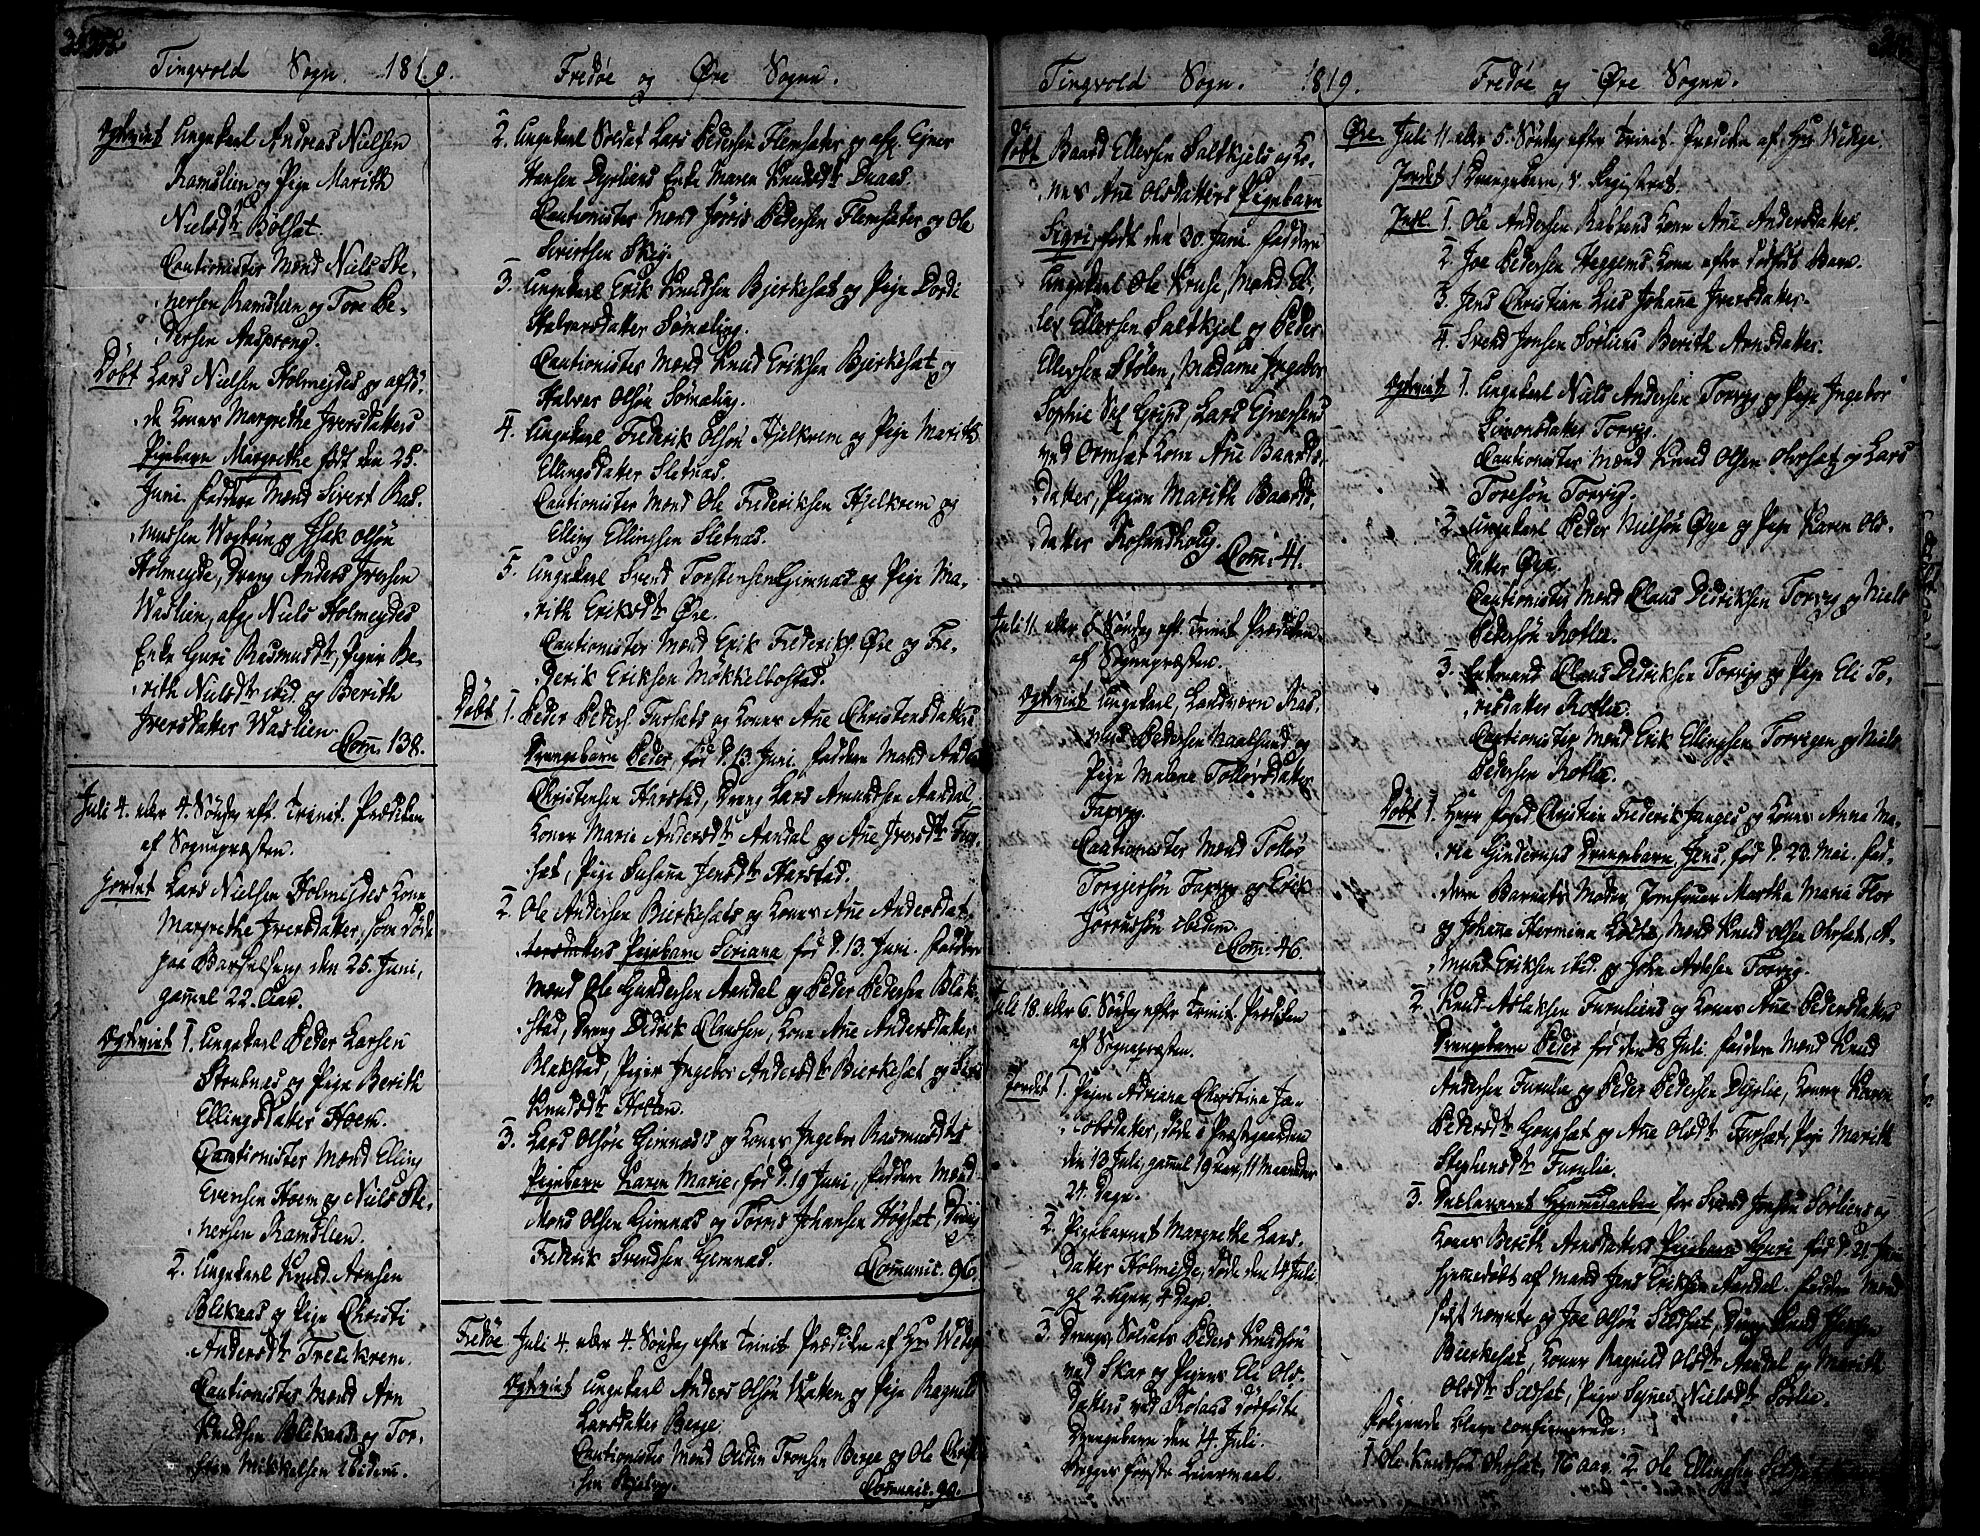 Tingvold Sogn. 1819.
Ægteviet Ungekarl Andreas Nielsen
Ramslien og Pige Marith
Nielsdtr Bölsæt.
Cautionister Mænd Niels Ste-
nersen Ramslien og Tore Pe-
dersen Aasprong.
Döbt Lars Nielsen Holmejdes og afdö-
de Kones Margrethe Iversdatters
Pigebarn Margrethe født den 25.
Juni. Faddere Mænd Sivert Ras-
mussen Wogböin og Isak Olsön
Holmejde, Dreng Anders Iversen
Waslien, afg. Niels Holmejdes
Enke Guri Rasmusdtr, Piger Be-
rith Nielsdtr ibid. og Berith
Iversdatter Waslien.
Com. 138.
Juli 4. eller 4. Söndag eft. Trinit. Prædiken
af Sognepræsten.
Jordet Lars Nielsen Holmejdes Kone
Margrethe Iversdatter, som döde
paa Barselseng den 25. Juni,
gammel 22. Aar.
Ægteviet 1. Ungekarl Peder Larsen
Strutnæs og Pige Berith
Ellingsdatter Hoem.
Cautionister Mænd Elling
Evensen Hoem og Niels Ste-
nersen Ramslien.
2. Ungekarl Knud Arnsen
Blekaas og Pige Christi
Andersdtr Tredikrem.
Cautionister Mænd Arn
Knudsen Blekaas og Tor-
sten Mikkelsen ibidem.
Fredøe og Øre Sogne.
2. Ungekarl Soldat Lars Pedersen Flemsæter og afg. Ejner
Hansen Dyrliens Enke Maren Knudsdtr Duaas.
Cautionister Mænd Jörris Pedersen Flemsæter og Ole
Sivertsen Skej.
3. Ungekarl Erik Knudsen Bjerkesæt og Pige Dordi
Halvorsdatter Sømæling.
Cautionister Mænd Knud Eriksen Bjerkesæt og
Halvor Olsön Sømæling.
4. Ungekarl Frederik Olsön Hjelkrem og Pige Marith
Ellingsdatter Sletnæs.
Cautionister Mænd Ole Frederiksen Hjelkrem og
Elling Ellingsen Sletnæs.
5. Ungekarl Svend Torstensen Gimnæs og Pige Ma-
rith Eriksdtr Øre.
Cautionister Mænd Erik Frederiks. Øre og Fre-
derik Eriksen Møkkelbostad.
Döbt 1. Peder Peders. Fursæts og Kones Ane Christensdatters
Drengebarn Peder, fød d. 13. Juni. Faddere Mænd Anders
Christensen Harstad, Dreng Lars Amundsen Aandal,
Koner Marie Andersdtr Aandal og Ane Iversdtr Fur-
sæt, Pige Susana Jensdtr Harstad.
2. Ole Andersen Bierkesæts og Kones Ane Andersdat-
tersdatters Pigebarn Seriana fød d. 13. Juni. Faddere
Mænd Ole Gundersen Aandal og Peder Pedersen Blak-
stad, Dreng Didrik Claussen, Kone Ane Andersdatter
Blakstad, Piger Ingebor Andersdtr Bierkesæt og
Knudsdtr Holten.
3. Lars Olsön Gimnæs's og Kones Ingebor Rasmusdtrs
Pigebarn Karen Marie, fød d. 19 Juni. Faddere Mænd
Mons Olsen Gimnæs og Torris Johansen Högsæt, Dreng
Frederik Svendsen Gimnæs.
Communic. 96.
Fredöe Juli 4. eller 4. Söndag efter Trinit. Prædiken af Hr. Wedege.
Ægteviet Ungekarl Anders Olsön Watten og Pige Ragnild
Larsdatter Berge.
Cautionister Mænd Oldin Tronsen Berge og Ole Christ-
sen Skjelvog.
Communic. 90.
Tingvold Sogn. 1819.
Döbt Baard Ellevsen Saltkjels og Ko-
nes Ane Olsdatters Pigebarn
Sigri, født den 30. Juni. Faddere
Ungekarl Ole Kruse, Mænd El-
lev Ellevsen Saltkjel og Peder
Ellevsen Stölen, Madame Ingebor
Sophie Grips, Lars Ejnersens
ved Ormsæt Kone Ane Baards-
datter, Pigen Marith Baards-
datter Rosundhoug.
Com: 41.
Juli 11. eller 5 Söndag eft. Trinit. Prædiken
af Sognepræsten.
Ægteviet Ungekarl, Landværn Ras-
mus Pedersen Naalsund og
Pige Malene Tollövsdatter
Torvig.
Cautionister Mænd Tollöv
Torgersön og Erik
ibidem.
Com: 46.
Juli 18. eller 6. Söndag efter Trinit. Prædiken
af Sognepræsten.
Jordet 1. Pigen Adriana Christina Ja-
cobsdatter, döde i Præstegaarden
den 13 Juli, gammel 19 Aar, 11 Maaneder
24. Dage.
2. Pigebarnet Margrethe Lars-
datter Holmejde, döde den 14 Juli
gl. 2. Uger, 4 Dage.
3. Dreng Soldats Peder Knudsöns
ved Skar og Pigens Eli Ols-
datters ved Rosaas dödfødte
Drengebarn den 14. Juli.
Begges første Leiermaal.
Fredøe og Øre Sogne.
Øre. Juli 11. eller 5. Söndag efter Trinit. Prædiken af Hr. Wedege.
Jordet 1 Drengebarn, v. Registeret.
Indl. 1. Ole Andersen Rabbens Kone Ane Andersdatter.
2. Joe Pedersen Heggems Kone efter dödfødt Barn.
3. Jens Christian Lies Johana Iversdatter.
4. Svend Jonsen Sörliens Berith Arnsdatter.
Ægteviet 1. Ungekarl Niels Andersen Torvig og Pige Ingebor
Simonsdatter Torvig.
Cautionister Mænd Knud Olsen Ohrsæt og Lars
Toresön Torvig.
2. Ungekarl Peder Nielsön Øye og Pige Karen Ols-
datter Øye.
Cautionister Mænd Claus Didriksen Torvig og Niels
Pedersön Rotlie.
3. Enkemand Claus Didriksen Torvig og Pige Eli To-
resdatter Rotlie.
Cautionister Mænd Erik Ellingsen Torvigen og Niels
Pedersen Rotlie.
Döbt 1. Herr Christian Frederik Janges og Kones Anna Ma-
ria Drengebarn, Jens, fød d. 23. Mai. Fad-
dere Barnets Moder, Jomfruer Martha Maria Flor
og Johana Hermina, Mænd Knud Olsen Ohrsæt, A-
mund Eriksen ibid. og John Torvig.
2. Knud Aslaksen Furuliens og Kones Ane Pedersdatters
Drengebarn Peder fød den 8 Juli. Faddere Mænd Knud
Andersen Furulie og Peder Pedersen Dyrlie, Koner Karen
Pedersdtr Goupsæt og Ane Olsdtr Fursæt, Pige Marith
Stephensdtr Furulie.
3. Declareret Hjemmedaaben for Svend Jonsön Sörliens og
Kones Berith Arnsdatters Pigebarn Guri fød d. 21. Juni
hjemmedöbt af Mand Jens Eriksen Aandal. Faddere Mænd
sidst nævnte og Joe Olsön Sildsæt, Dreng Knud
Bierkesæt, Koner Ragnild Olsdtr Aandal og Marith
Olsdtr Sildsæt, Pige Sygnes Nielsdtr Sörlie.
Følgende bleve confirmerede:
1. Ole Knudsön Ohrsæt, 16 Aar. 2. Ole Ellingsen